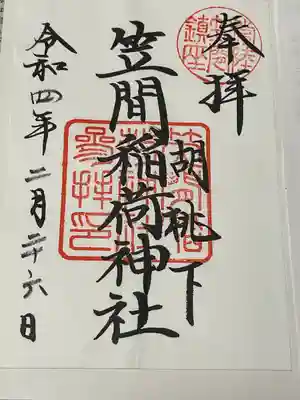 奉拝
胡桃下
笠間稲荷神社
令和四年二月二十六日